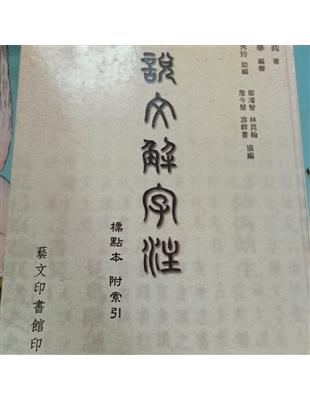 裁 著
華 編審
秀玲 助編
鄒濬智 林昆翰
詹今慧 游群書
協編
說文解字注
標點本 附索引
藝文印書館印